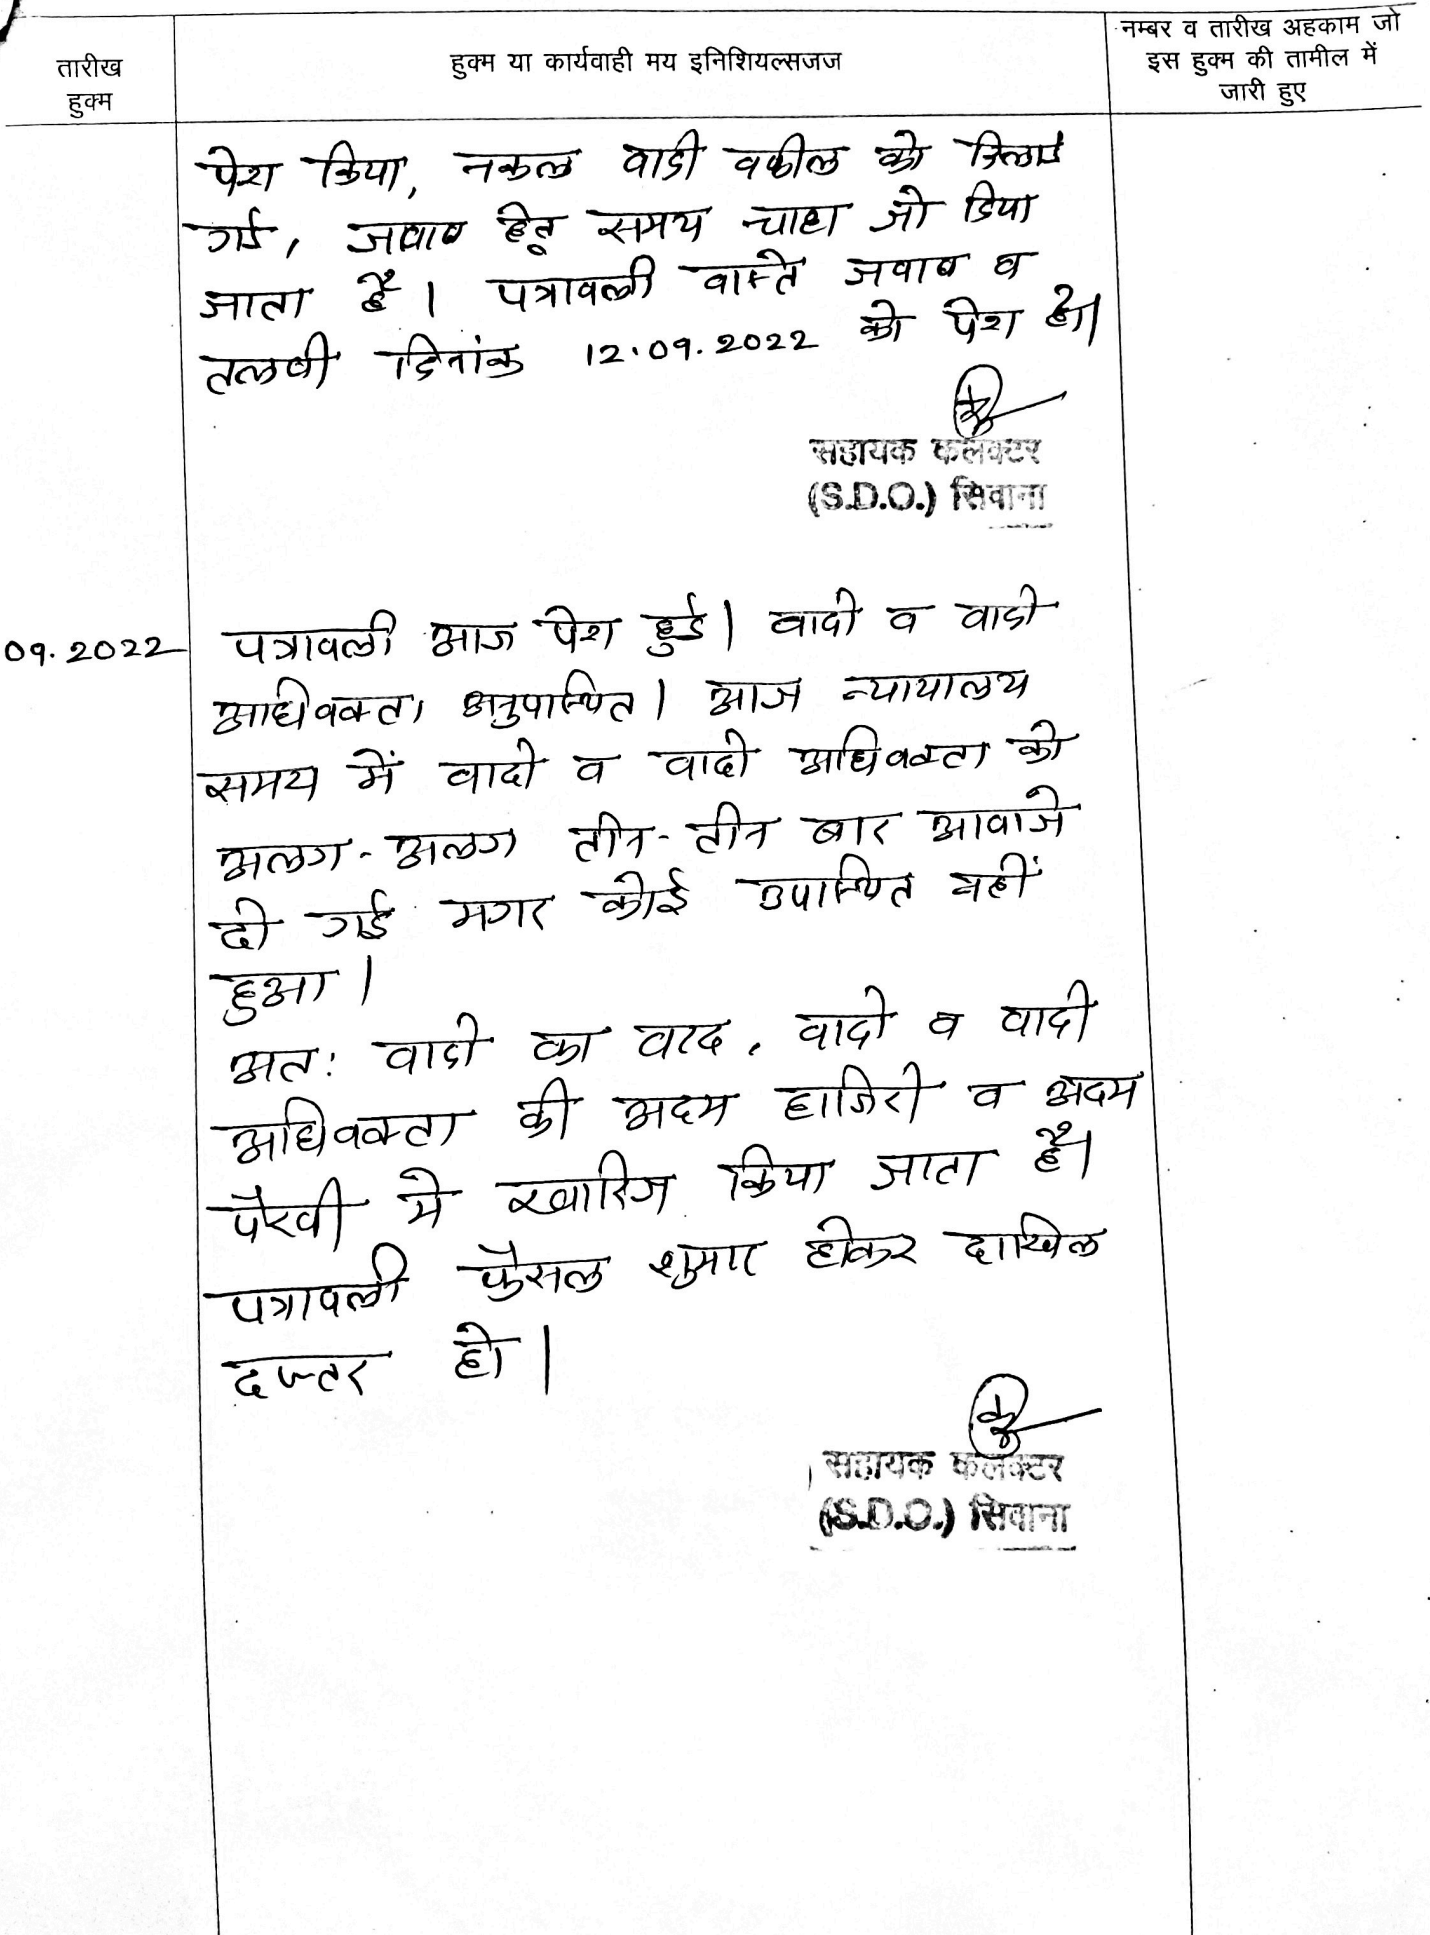 तारीख
हुक्म
हुक्म या कार्यवाही मय इनिशियल्सजज
नम्बर व तारीख अहकाम जो
इस हुक्म की तामील में
जारी हुए
पेश किया, नकल वादी वकील को दिलाई
गई, जवाब हेतू समय चाहा जो दिया
जाता है। पत्रावली वास्ते जवाब व
तलबी दिनांक 12.09.2022 को पेश हो।
सहायक कलक्टर
(S.D.O.) सिवाना
09.2022
पत्रावली आज पेश हुई। वादी व वादी
अधिवक्ता अनुपस्थित। आज न्यायालय
समय में वादी व वादी अधिवक्ता को
अलग-अलग तीन-तीन बार आवाजे
दी गई मगर कोई उपस्थित नहीं
हुआ।
अतः वादी का वाद, वादी व वादी
अधिवक्ता की अदम हाजिरी व अदम
पैरवी मे खारिज किया जाता है।
पत्रावली फैसल शुमार होकर दाखिल
दफ्तर हो।
सहायक कलक्टर
(S.D.O.) सिवाना